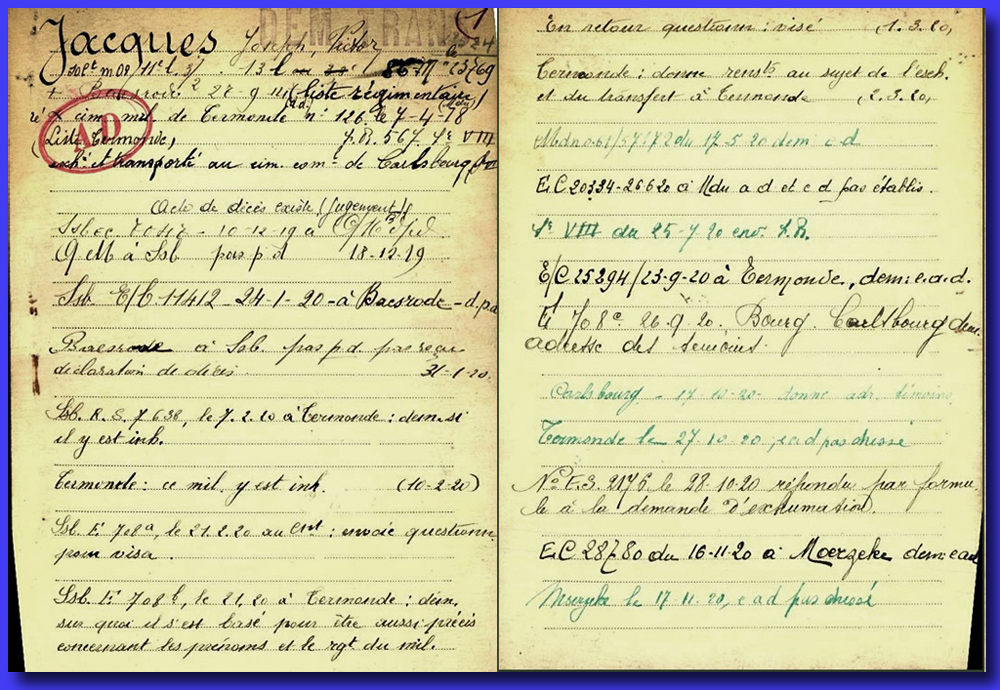 Jacques Joseph, Victor
Baesrode 28-9-14 (liste régimentaire
cim. mil. de Termonde n° 126, le 7-4-18
(Liste Termonde, J.R. 567. Sr VIII
AD
exh. et transporté au cim. com. de Carlsbourg
Acte de décès existe (jugement)
10-12-19 à
à Ssb pas p d 18-12-19
Ssb. E/C 11412 - 24-1-20 - à Baesrode - d.p.a
Baesrode à Ssb. pas p.d. pas reçu
déclaration de décès 31-1-20.
Ssb. R. S. 7638, le 7.2.20 à Termonde : dem. si
il y est inh.
Termonde : ce mil. y est inh. (10-2-20)
Ssb. E 708a, le 21.2.20 au : envoie questionn.
pour visa.
Ssb. E 708b, le 21.20 à Termonde : dem.
sur quoi il s'est basé pour être aussi précis
concernant les prénoms et le rgt du mil.
En retour questionn : visé (1.3.20,
Termonde : donne rensts au sujet de l'exh.
et du transfert à Termonde (2.3.20,
du 17-5-20 dem c d
E.C 20334-26620 à Mdu a d et c d pas établis.
Sr VIII du 25-7-20 env. L.R.
E/C 25394/23-9-20 à Termonde, dem: c.a.d.
E 708c. 26.9.20, Bourg. Carlsbourg dem.
adresse des temoins.
Carlsbourg - 17-10-20 - donne adr. témoins
Termonde le 27.10.20, c a d pas dressé
No E.3.2176 le 28-10-20 répondu par formu
le à la demande d'exhumation.
E.C 28780 du 16-11-20 à Moerzeke dem: c ad
Moerzeke le 17.11.20, c a d pas dressé